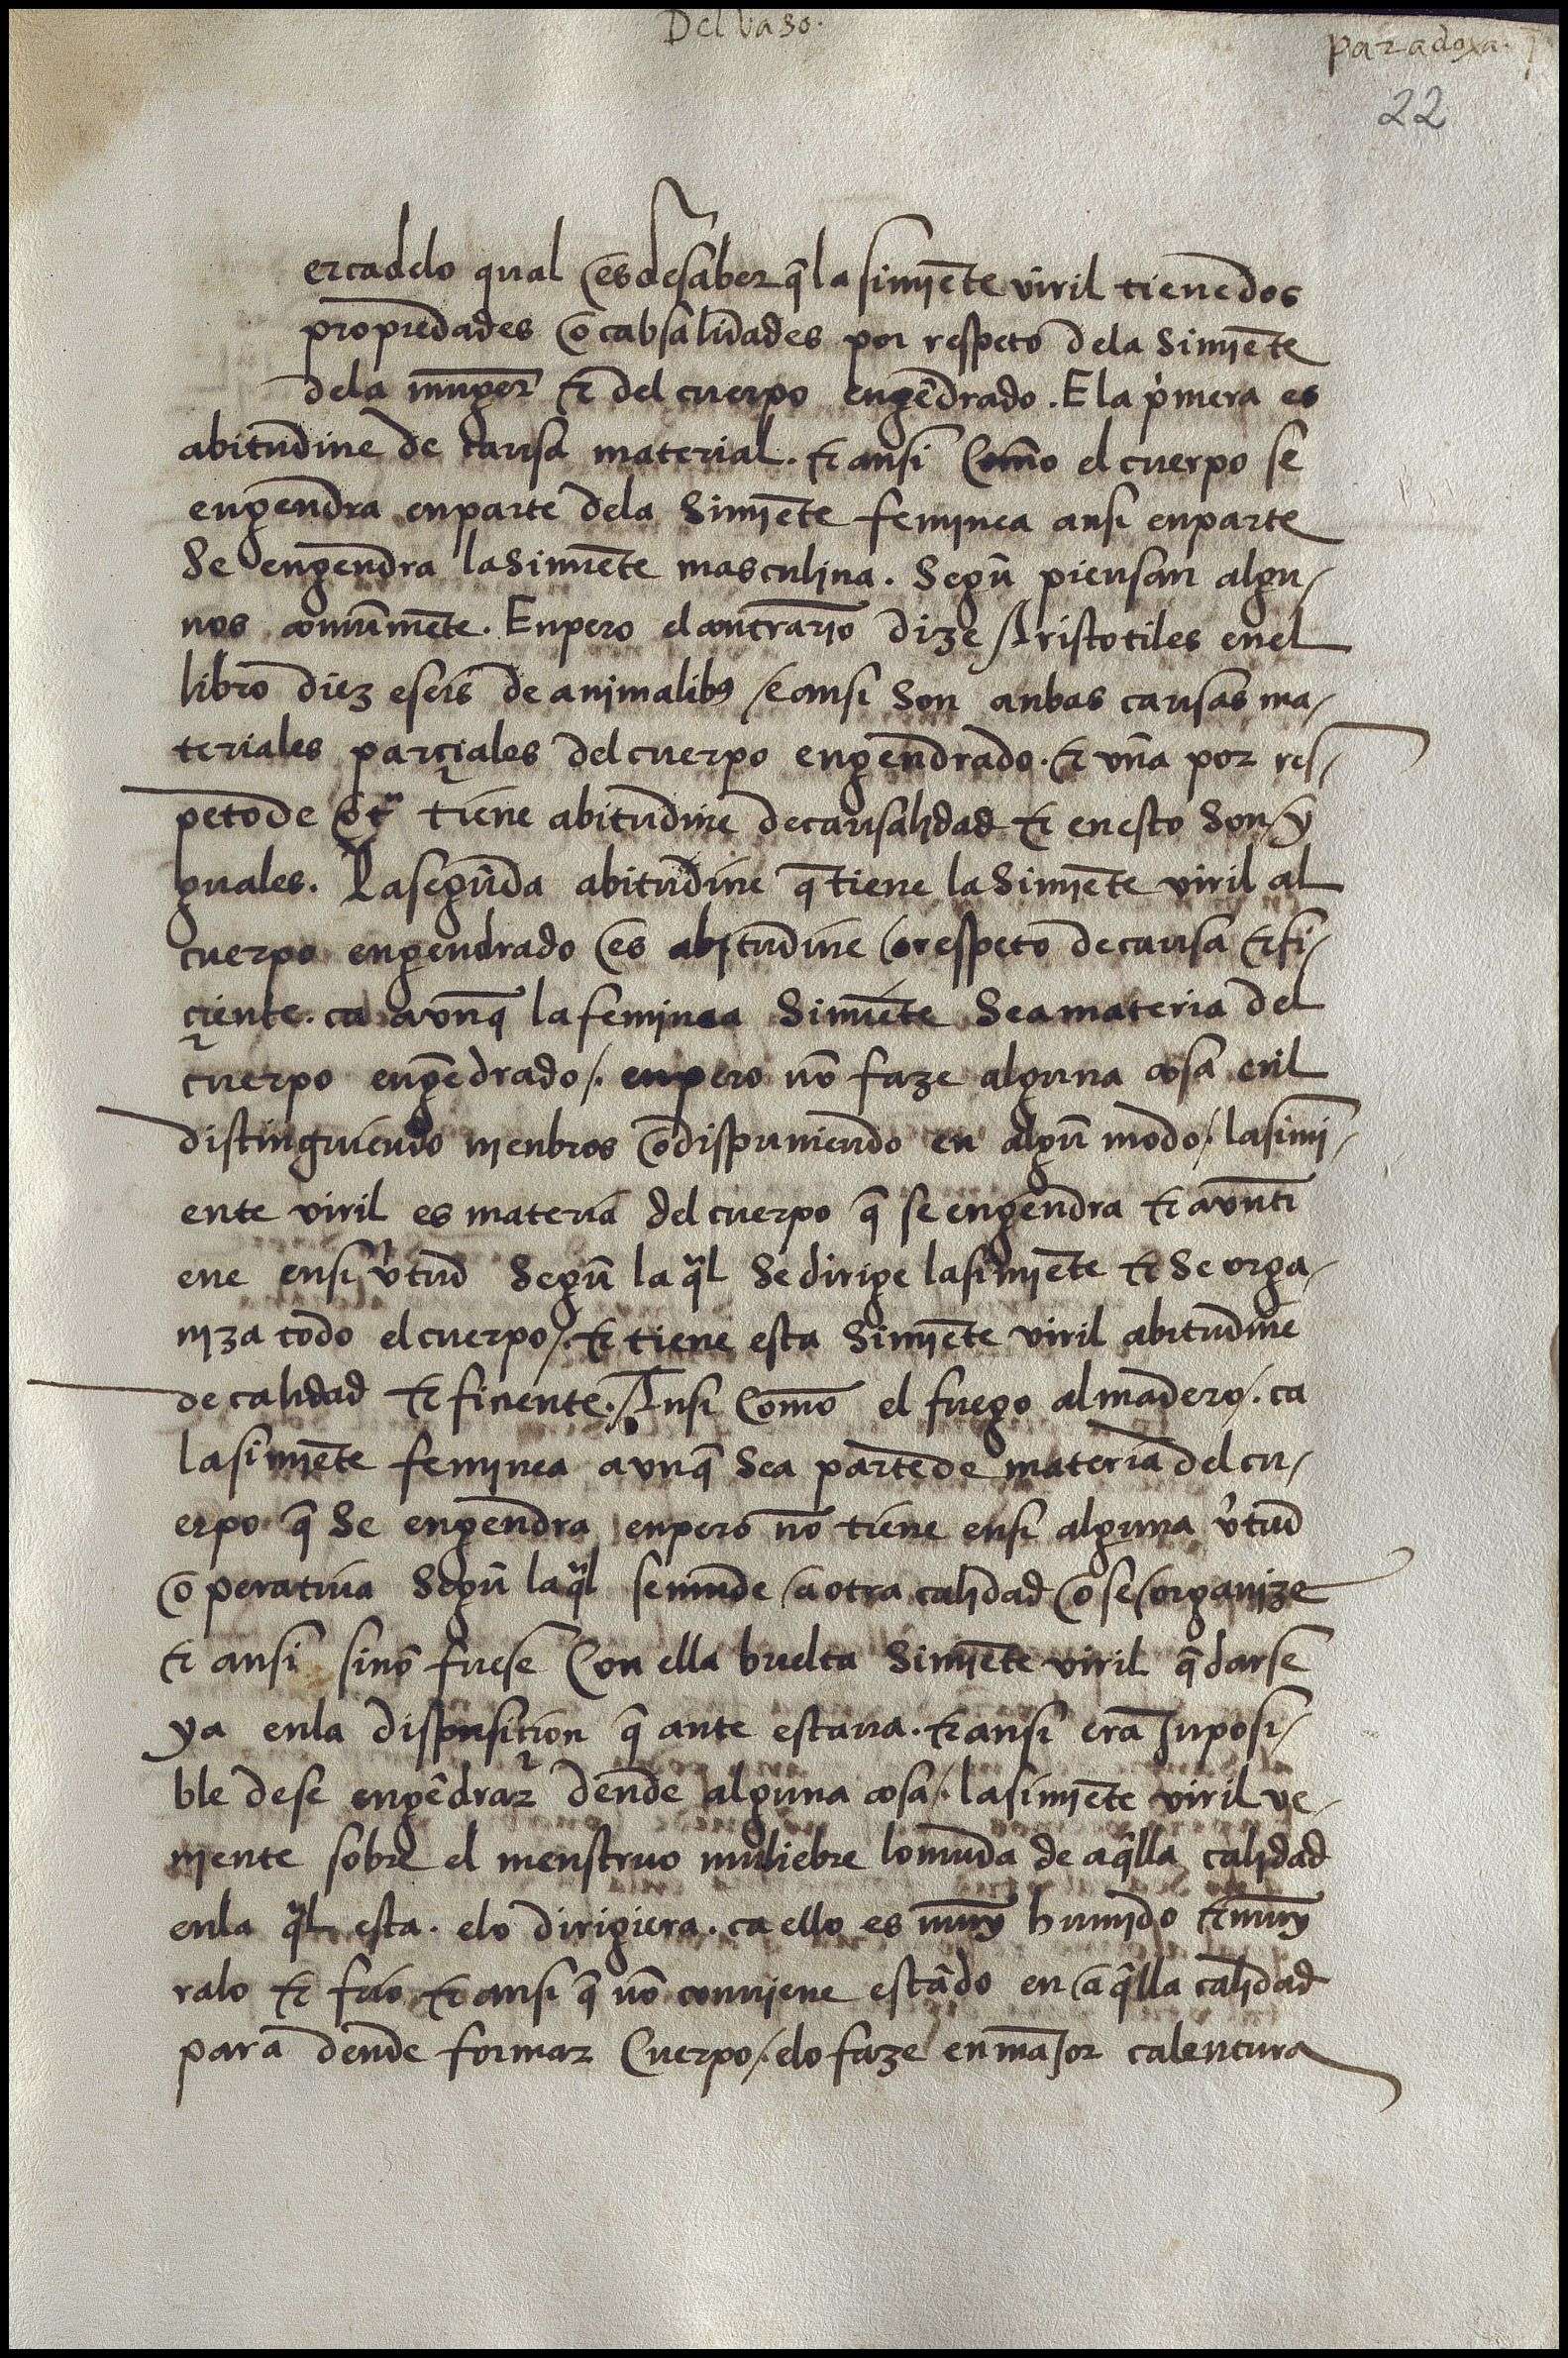 Del vaso.
paradoxa. j
22
ercadelo qual es desaber q̃ la simiẽte viril tienedos
propriedades o cabsalidades por respeto dela Simiẽte
dela muger & del cuerpo engẽdrado. E la p̃mera es
abitudine de causa material. & ansi Como el cuerpo se
engendra enparte dela Simiẽte feminea ansi enparte
Se engendra laSimiẽte masculina. Segũ piensan algu/
nos comũmẽte. Enpero el contrario dize Aristotiles enel
libro diez eseis de animalibꝯ / e ansi Son anbas causas ma/
teriales parçiales del cuerpo engendrado. & vña por res/
petode otª tiene abitudine decausalidad & enesto Son / y
guales. La segũda abitudine q̃ tiene la Simiẽte viril al
cuerpo engendrado es abitudine o respeto decausa efi/
çiente. ca avnq̃ la feminea Simiẽte Sea materia del
cuerpo engẽdrado /. enpero nõ faze alguna cosa enl
distinguiendo menbros o dispuniendo en algũ modo /. lasimi/
ente viril es materia del cuerpo q̃ se engendra & avnti
ene ensi v̉tud Segũ la qªl Se dirige lasimiẽte & Se orga/
niza todo el cuerpo /. & tiene esta Simiẽte viril abitudine
de calidad efiçiente. Ansi Como el fuego al madero /. ca
lasimiẽte feminea avnq̃ Sea partede materia del cu/
erpo q̃ Se engendra enpero nõ tiene ensi alguna v̉tud
operatiua Segũ laqªl semude a otra calidad o se organize
& ansi sinõ fuese Con ella buelta Simiẽte viril q̃darse
ya enla dispusiçion q̃ ante estaua. & ansi era Jnposi/
ble dese engẽdrar dende alguna cosa /. lasimiẽte viril ve/
niente sobre el menstruo muliebre lomuda de aq̃lla calidad
enla qªl esta. elo dirigiera. ca ello es muy humido & muy
ralo & frio & ansi q̃ nõ conuiene estãdo en aq̃lla calidad
para dende formar Cuerpo /. elo faze en maJor calentura